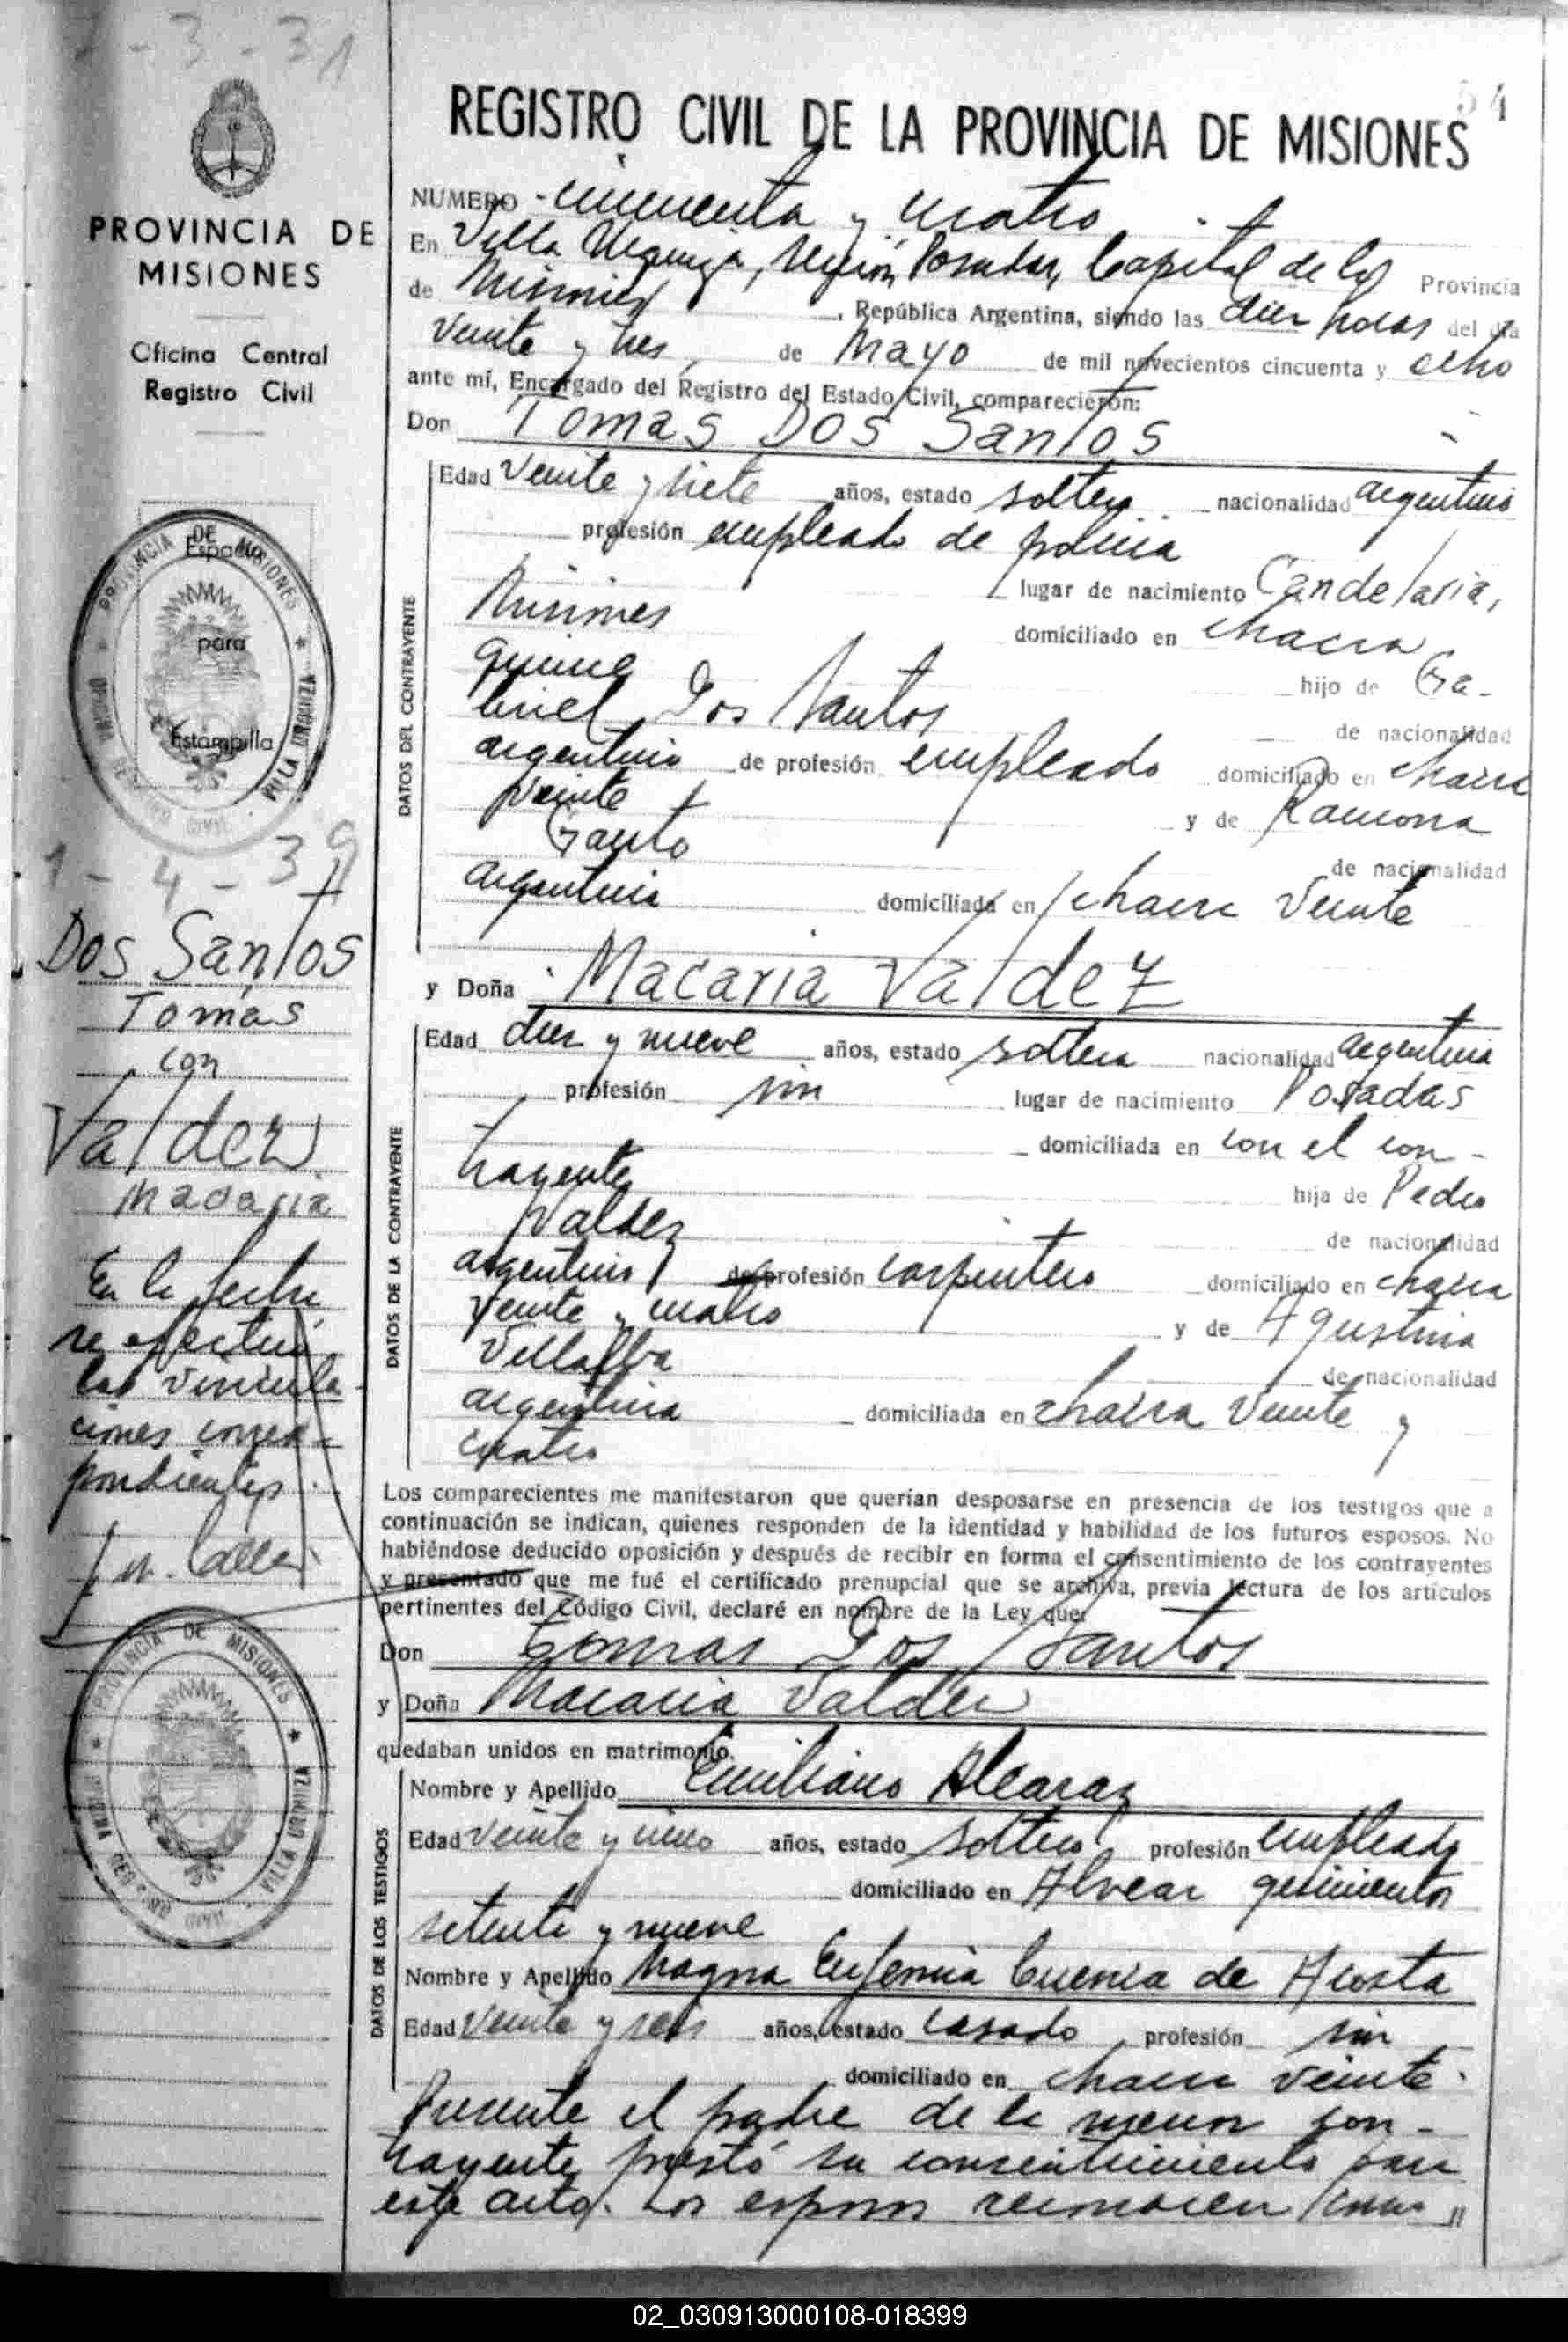 7-3-31
54
REGISTRO CIVIL DE LA PROVINCIA DE MISIONES
PROVINCIA DE
MISIONES
Oficina Central
Registro Civil
PROVINCIA DE MISIONES
Espacio
para
Estampilla
VILLA URQUIZA
1-4-39
Dos Santos
Tomás
con
Valdez
Macaria
En la fecha
se efectuó
las vincula
ciones corres-
pondientes.
PROVINCIA DE MISIONES
VILLA URQUIZA
NUMERO - cincuenta y cuatro
En Villa Urquiza, sección Posadas, Capital de la Provincia
de Misiones, República Argentina, siendo las diez horas del día
veinte y tres, de Mayo de mil novecientos cincuenta y ocho
ante mí, Encargado del Registro del Estado Civil, comparecieron:
Don Tomas Dos Santos
DATOS DEL CONTRAYENTE
Edad veinte y siete años, estado soltero nacionalidad argentino
profesión empleado de policia
lugar de nacimiento Candelaria,
Misiones domiciliado en chacra
quince hijo de Ga-
briel Dos Santos de nacionalidad
argentino de profesión empleado domiciliado en chacra
veinte y de Ramona
de nacionalidad
argentina domiciliada en chacra veinte
y Doña Macaria Valdez
DATOS DE LA CONTRAYENTE
Edad diez y nueve años, estado soltera nacionalidad argentina
profesión sin lugar de nacimiento Posadas
domiciliada en con el con-
trayente hija de Pedro
Valdez de nacionalidad
argentino de profesión carpintero domiciliado en chacra
veinte y cuatro y de Agustina
Villalba de nacionalidad
argentina domiciliada en chacra veinte y
cuatro
Los comparecientes me manifestaron que querían desposarse en presencia de los testigos que a
continuación se indican, quienes responden de la identidad y habilidad de los futuros esposos. No
habiéndose deducido oposición y después de recibir en forma el consentimiento de los contrayentes
y presentado que me fué el certificado prenupcial que se archiva, previa lectura de los artículos
pertinentes del Código Civil, declaré en nombre de la Ley que:
Don Tomas Dos Santos
y Doña Macaria Valdez
quedaban unidos en matrimonio.
DATOS DE LOS TESTIGOS
Nombre y Apellido Emiliano Alcaraz
Edad veinte y cinco años, estado soltero profesión empleado
domiciliado en Alvear quinientos
setenta y nueve
Nombre y Apellido Magna Eugenia Cuenca de Acosta
Edad veinte y seis años, estado casado profesión sin
domiciliado en chacra veinte.
Presente el padre de la menor con-
trayente prestó su consentimiento para
este acto. Los esposos reconocen como "
02_030913000108-018399